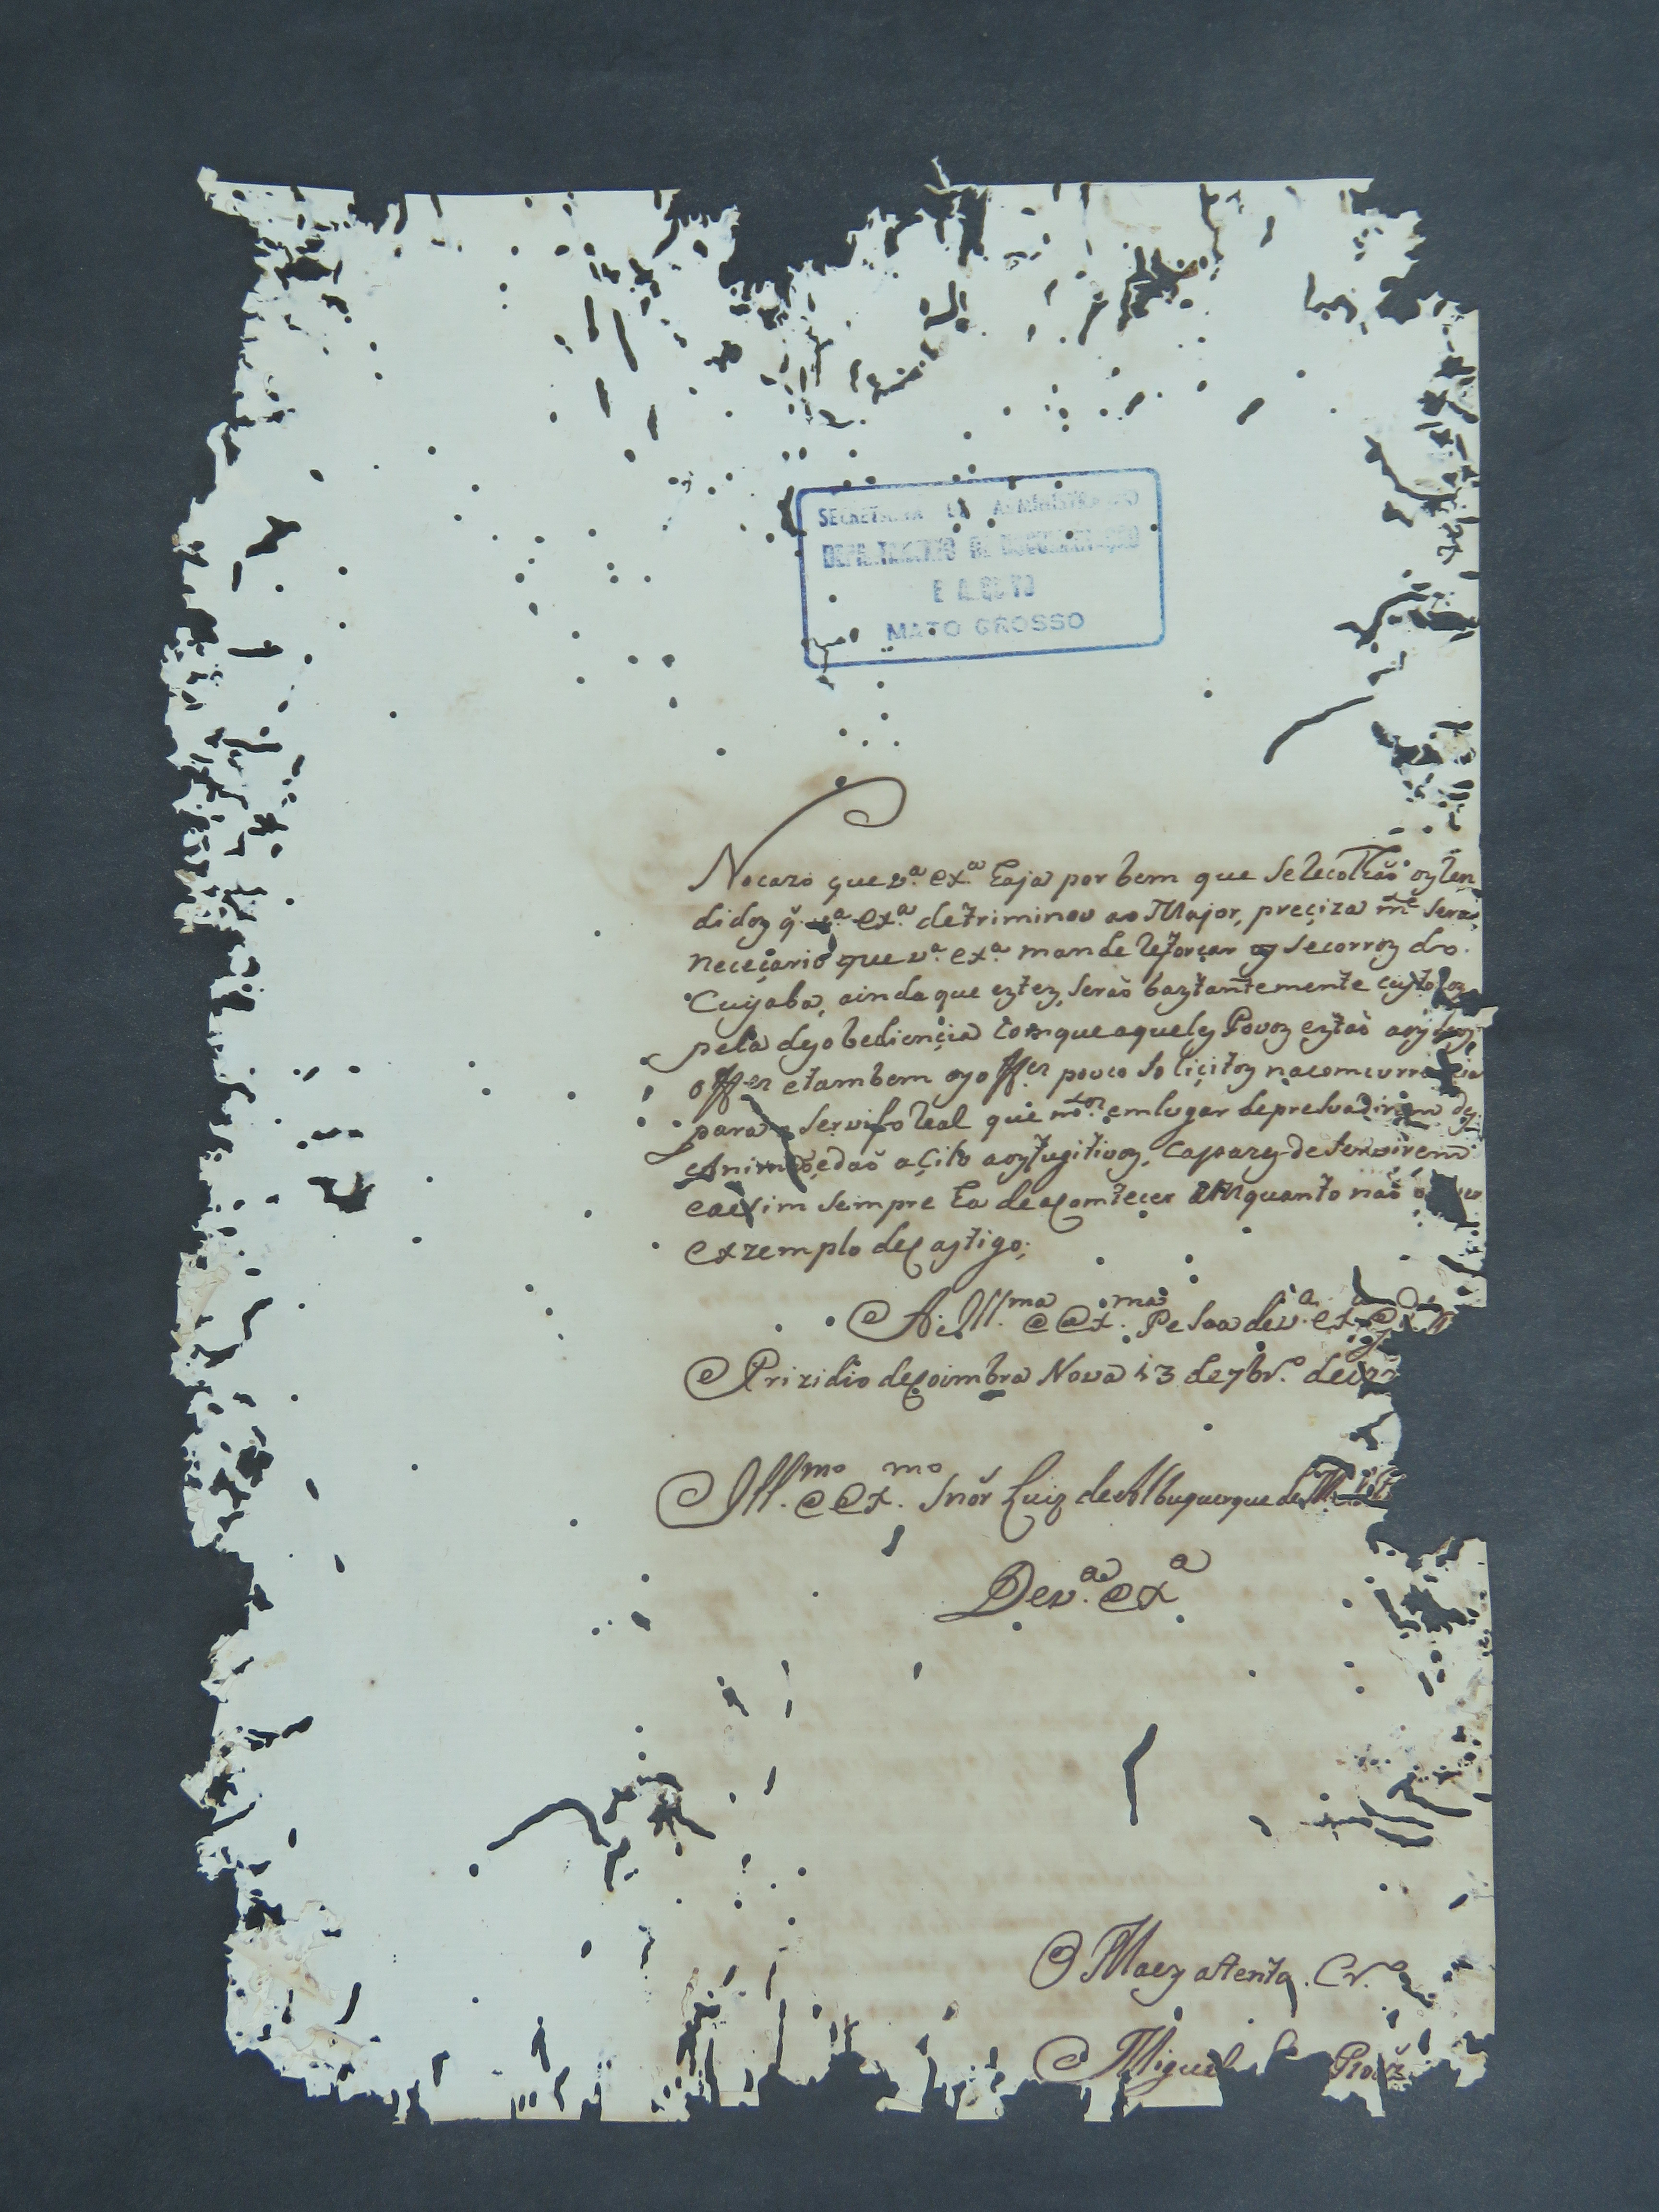 SECRETARIA DE ADMINISTRAÇÃO
DEPARTAMENTO DE DOCUMENTAÇÃO
E ARQUIVO
MATO GROSSO
No cazo que v.ª ex.ª haja por bem que se recolhão oz ren
didoz q̃ v.ª ex.ª detriminou ao Major, preçiza m.te sera
neceçario que v.ª ex.ª mande reforçar oz secorroz do
Cuyaba, ainda que eztez, serão baztantemente cuztozoz
pela dezobediençia com que aquelez Povoz eztão aoz
offer e tambem oz offer pouco soliçitoz na comcurrencia
para o serviso real que m.tos em lugar de presuadirem
Animo, e dão açilo aoz fugitivoz, capazez de servirem
e asim sempre ha de acomtecer em quanto não
exzemplo de castigo;
A Ill.ma e Ex.ma Pesoa de v.ª ex.ª
Prizidio de Coimbra Nova 13 de 7br.º de
Ill.mo e Ex.mo Snõr Luiz de Albuquerque de
De v.ª ex.ª
O Maez atento Cr.º
Miguel